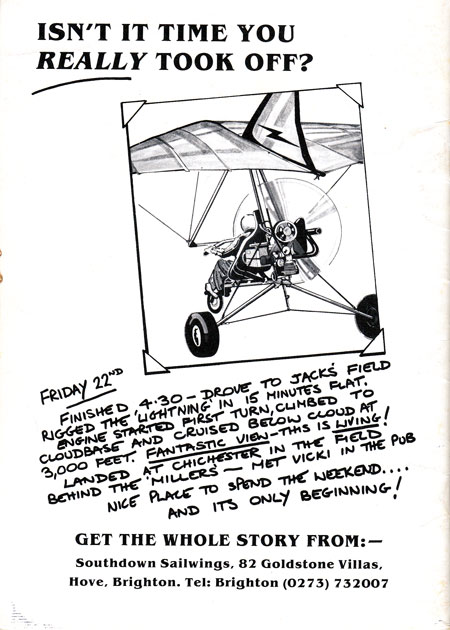 ISN'T IT TIME YOU
REALLY TOOK OFF?
FRIDAY 22ND
FINISHED 4.30 – DROVE TO JACK'S FIELD
RIGGED THE 'LIGHTNING' IN 15 MINUTES FLAT.
ENGINE STARTED FIRST TURN, CLIMBED TO
CLOUDBASE AND CRUISED BELOW CLOUD AT
3,000 FEET. FANTASTIC VIEW – THIS IS LIVING!
LANDED AT CHICHESTER IN THE FIELD
BEHIND THE 'MILLERS' – MET VICKI IN THE PUB
NICE PLACE TO SPEND THE WEEKEND....
AND ITS ONLY BEGINNING!
GET THE WHOLE STORY FROM:—
Southdown Sailwings, 82 Goldstone Villas,
Hove, Brighton. Tel: Brighton (0273) 732007